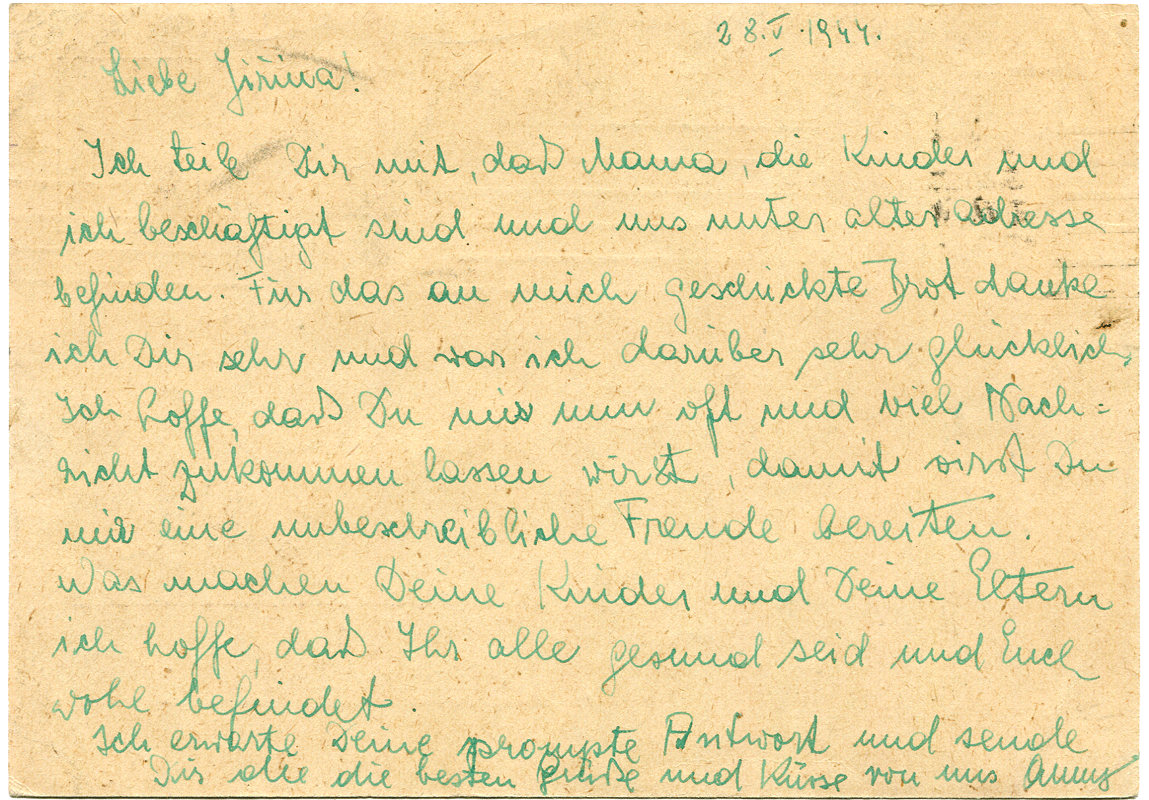 28.V.1944.
Liebe Jiřina!
Ich teile Dir mit, daß Mama, die Kinder und
ich beschäftigt sind und uns unter alter Adresse
befinden. Für das an mich geschickte Brot danke
ich Dir sehr und war ich darüber sehr glücklich.
Ich hoffe, daß Du mir nun oft und viel Nach=
richt zukommen lassen wirst, damit wirst Du
mir eine unbeschreibliche Freude bereiten.
Was machen Deine Kinder und Deine Eltern
ich hoffe, daß Ihr alle gesund seid und Euch
wohl befindet.
Ich erwarte Deine prompte Antwort und sende
Dir die die besten Grüße und Küsse von uns Anny